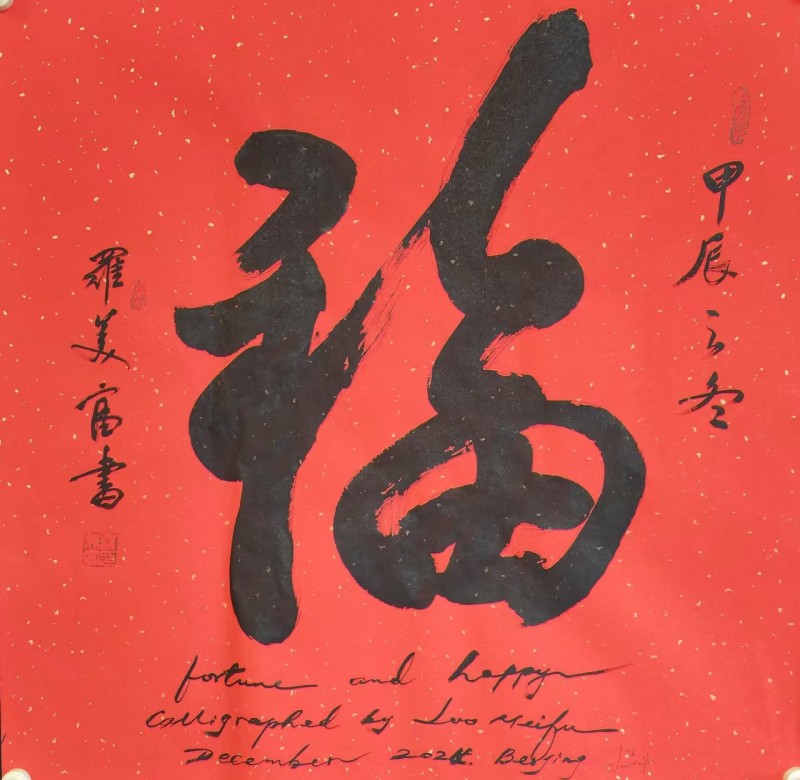 福
甲辰之冬
羅美富書
fortune and happy
Calligraphed by Luo Meifu
December 2024. Beijing